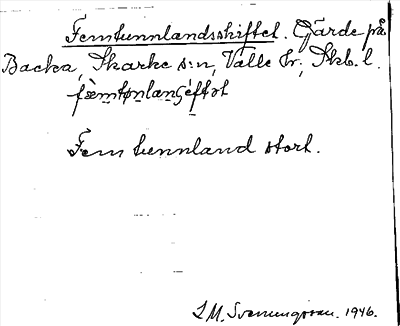 Femtunnlandsskiftet. Gärde på
Backa, Skarke s:n, Valle hr; Skb. l.
fèmtønlanʃéftət
Fem tunnland stort.
S. M. Svenungsson. 1946.